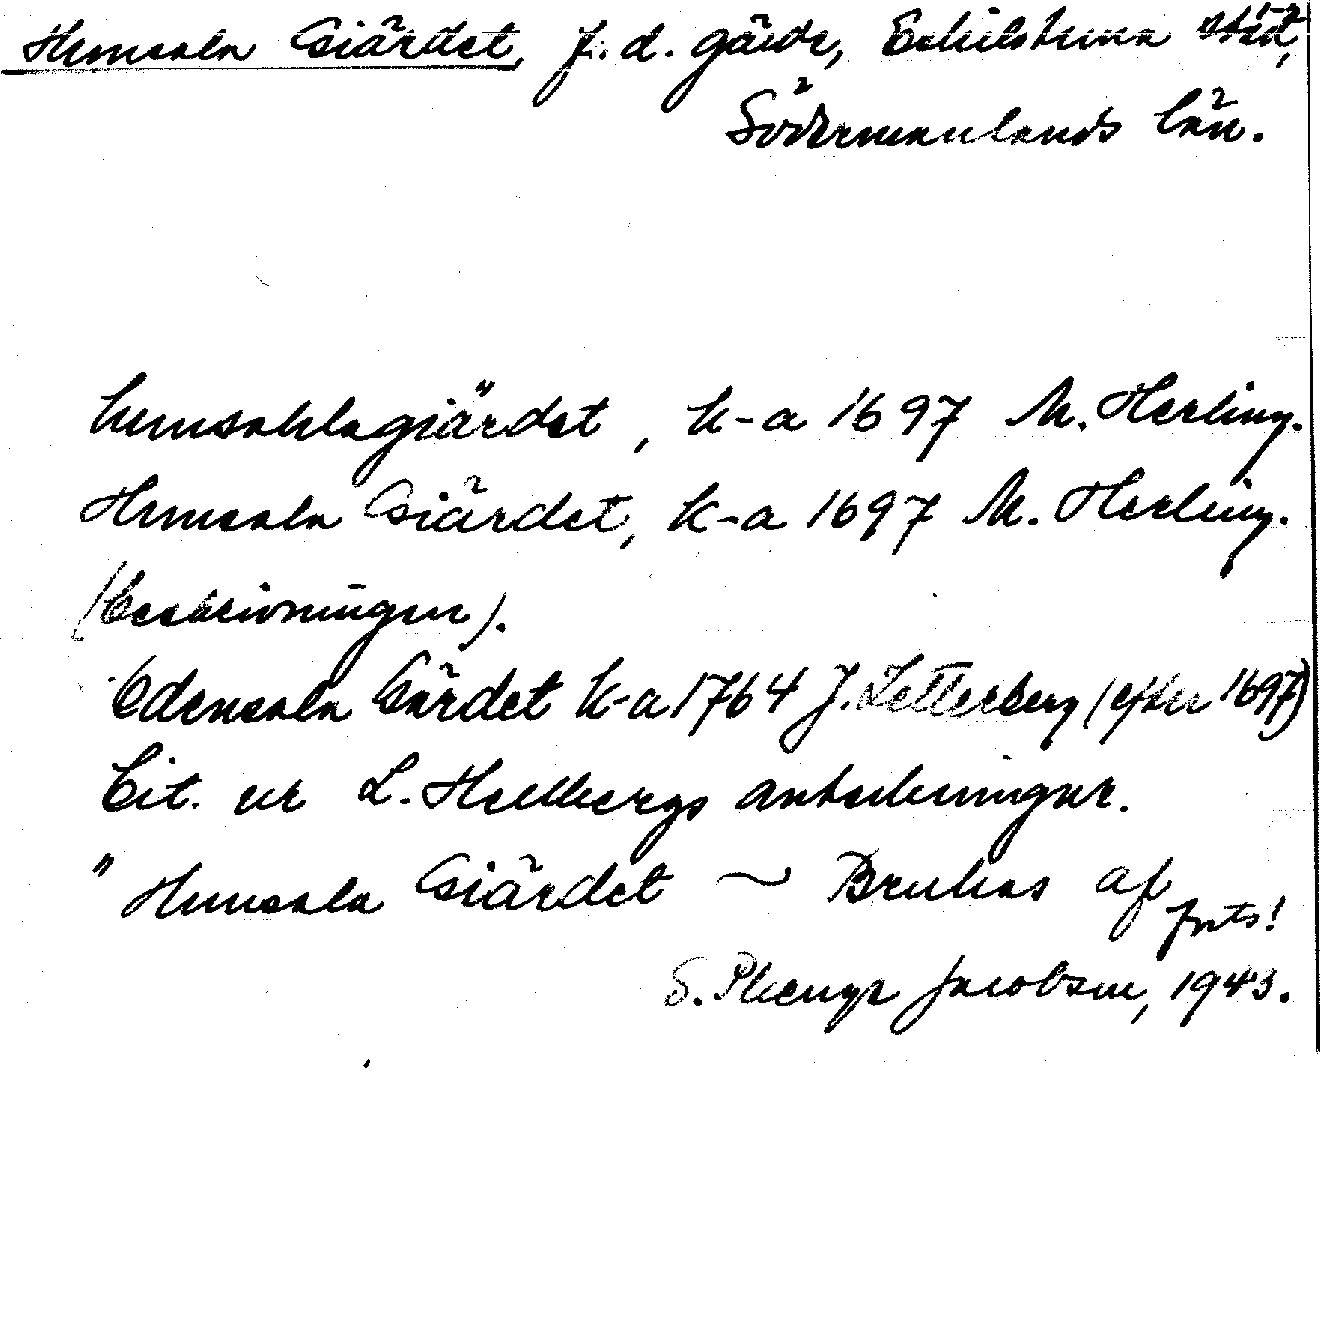 Hunsala Giärdet, f. d. gärde, Eskilstuna stad,
Södermanlands län.
hunsahlagiärdet, k-a 1697 M. Herling.
Hunsala Giärdet, k-a 1697 M. Herling.
(beskrivningen).
Odensala Gärdet k-a 1764 J. Zetterberg (efter 1697)
Cit. ur L. Hellbergs anteckningar.
" Hunsala Giärdet ~ Brukas af
forts!
S. Phenyx Jacobson, 1943.